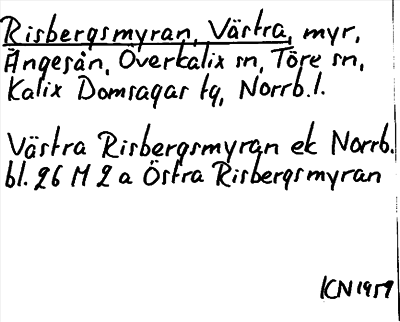 Risbergsmyran, Västra, myr,
Ängesån, Överkalix sn, Töre sn,
Kalix Domsagas tg, Norrb.l.
Västra Risbergsmyran ek Norrb.
bl. 26 M 2 a Östra Risbergsmyran
KN 1959